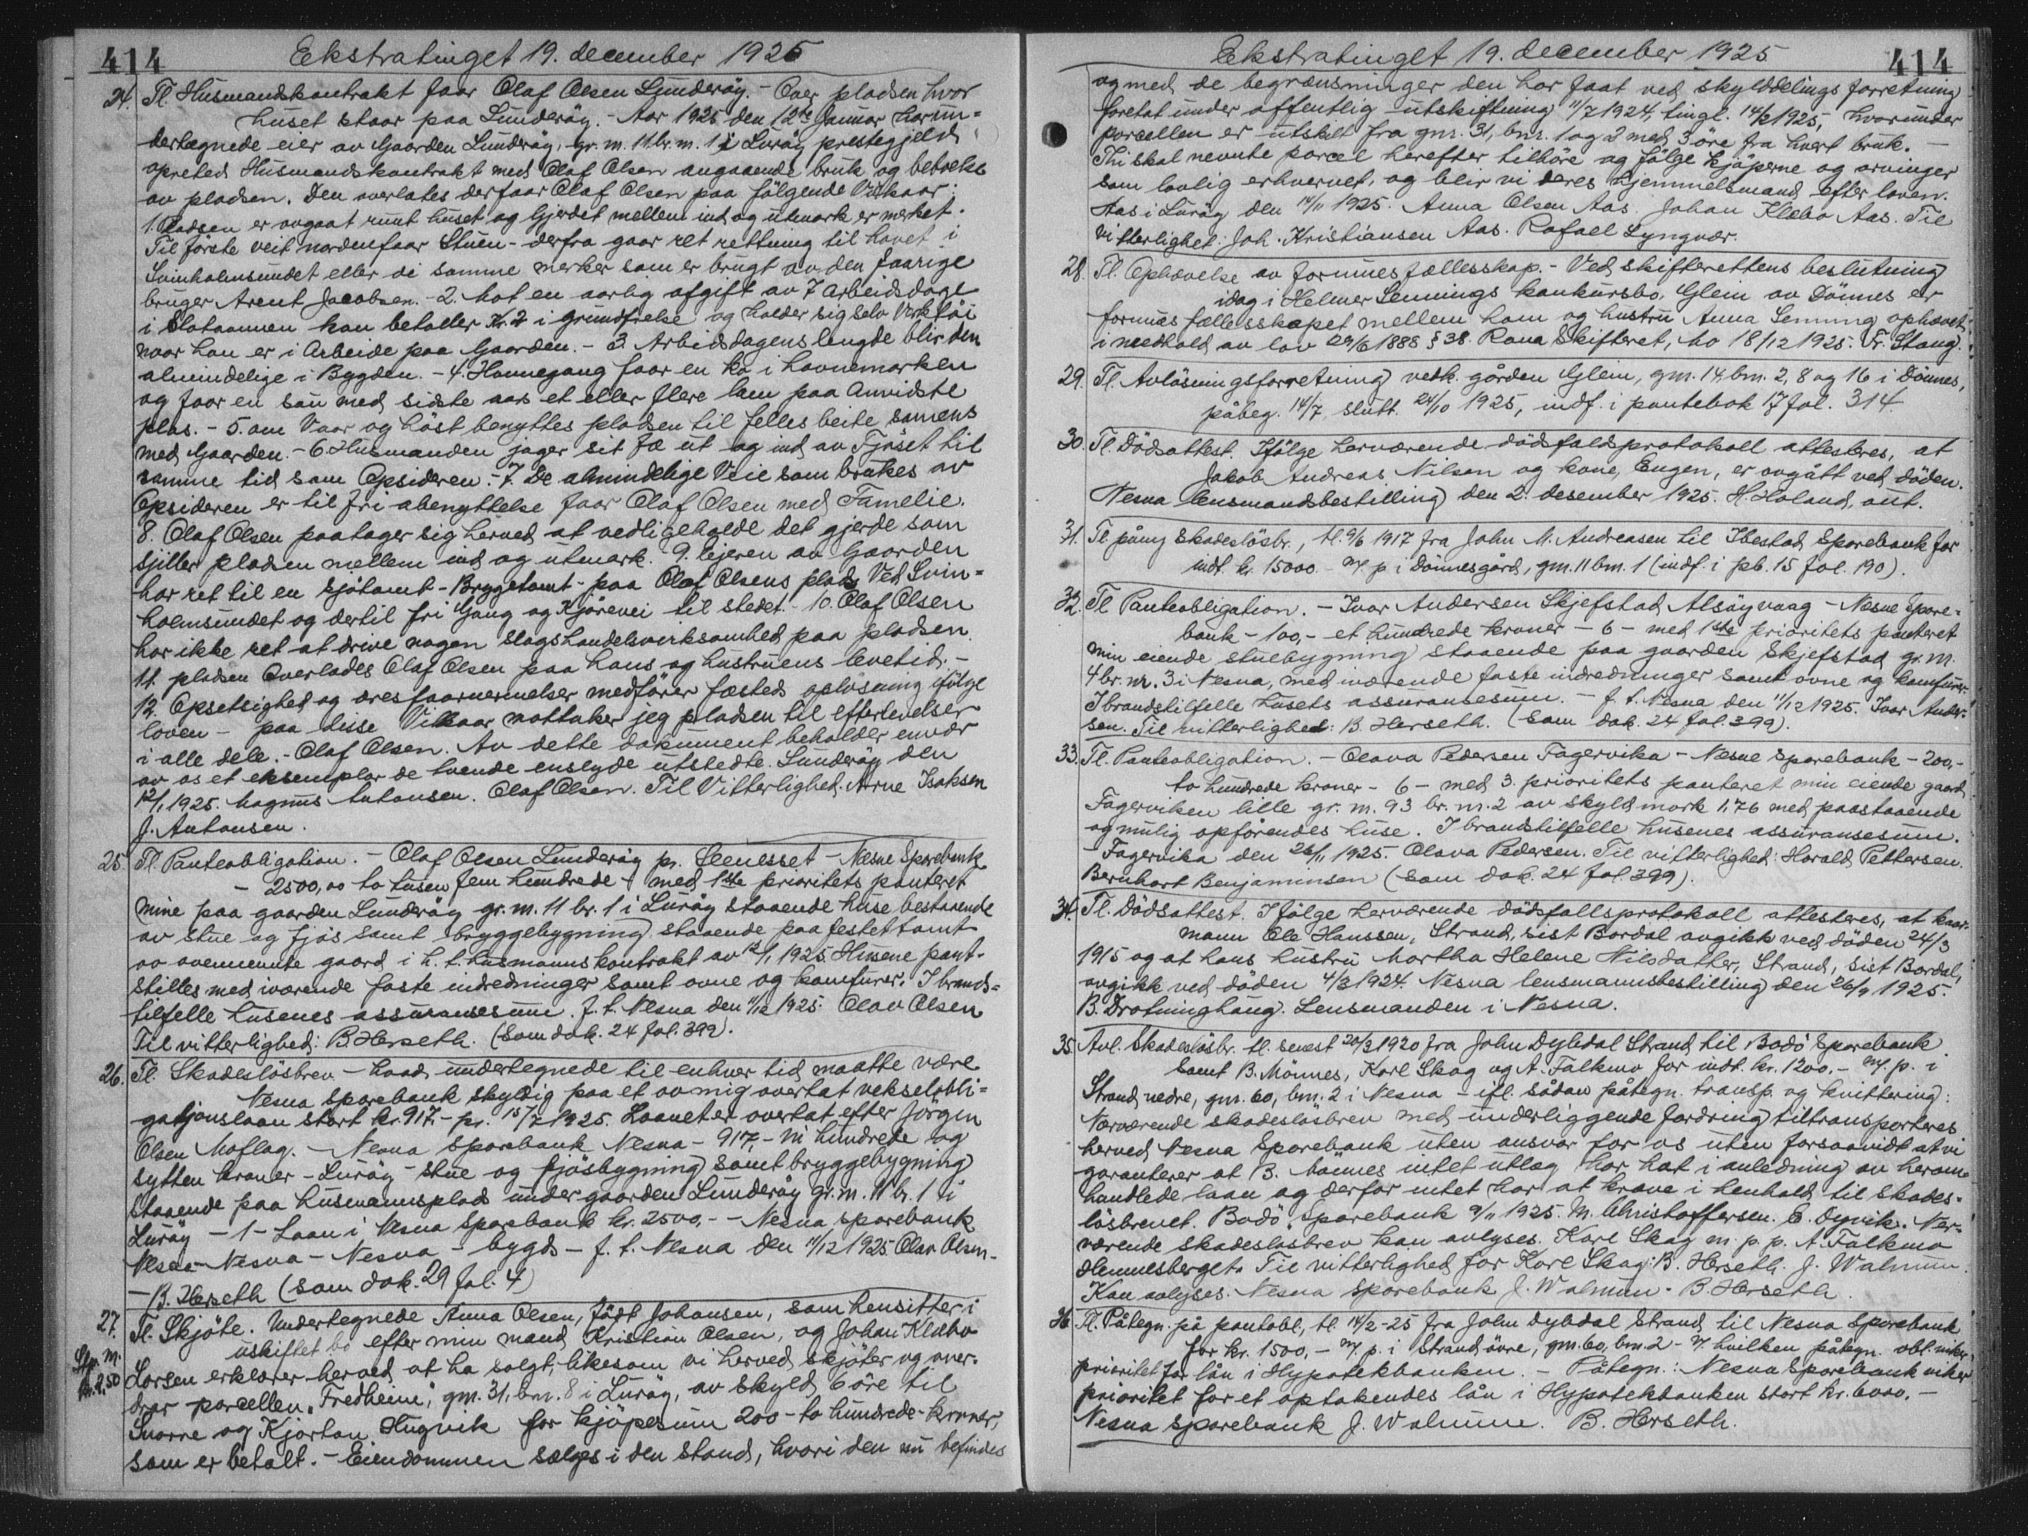 414
Ekstratinget 19. december 1925
24. Tl. Husmandskontrakt faar Olaf Olsen Lunderöy. - Over pladsen hvor
huset staar paa Lunderöy. - Aar 1925 den 12te Januar har un-
dertegnede eier av Gaarden Lunderöy, gr. m. 11 br. m. 1 i Luröy prestegjeld
opretted Husmandskontrakt med Olaf Olsen angaaende bruk og
av pladsen. Den overlates derfaar Olaf Olsen paa fölgende Vilkaar:
1. Pladsen er avgaat runt huset og Gjerdet mellem ind og utmark er merket.
Til förste veit nordenfaar Stuen - derfra gaar ret rettning til havet i
Svinholmsundet eller de samme merker som er brugt av den faarige
bruger Arent Jacobsen. - 2. Mot en aarlig afgift av 7 Arbeidsdage
i Slotaannen kan betaller Kr. 2 i grundfrelse og holder sig selv Verktöi
naar han er i Arbeide paa Gaarden. - 3. Arbeidsdagens lengde blir den
almindelige i Bygden. - 4. Havnegang faar en ko i havnemarken
og faar en sau med sidste aars et eller flere lam paa Anvidste
plas. - 5. om Vaar og höst benyttes pladsen til felles beite samens
med Gaarden. - 6. Husmanden jager sit fæ ut og ind av Fjöset til
samme tid som Opsideren. - 7. De almindelige Veie som brukes av
Opsideren er til fri abenyttelse faar Olaf Olsen med Famelie.
8. Olaf Olsen paatager sig herved at vedligeholde det gjerde som
sjiller pladsen mellem ind og utmark. 9. Eieren av Gaarden
har ret til en sjötomt - Bryggetomt - paa Olaf Olsens plads Ved Svin-
holmsundet og dertil fri Gang og Kjörevei til stedet. - 10. Olaf Olsen
har ikke ret at drive nogen slags handelsvirksomhed paa pladsen.
11. pladsen Overlades Olaf Olsen paa hans og hustruens levetid. -
12. Opsetsighed og æresfaarnermelser medförer fæsteds oplösning ifölge
loven - paa disse Vilkaar mottaker jeg pladsen til efterlevelser
i alle dele. - Olaf Olsen. Av dette dokument beholder enver
av os et eksemplar de tvende enslyde utstedte. Lunderöy den
12/1 1925. Magnus Antonsen. Olaf Olsen. Til Vitterlighed. Arne Isaksen
J. Antonsen.
25. Tl. Panteobligation. - Olaf Olsen Lunderöy pr. - Nesna Sparebank
- 2500,00 to tusen fem hundrede - med 1ste prioritets panteret
mine paa gaarden Lunderöy gr. m. 11 br. 1 i Luröy staaende huse bestaaende
av stue og fjös samt bryggebygning staaende paa festet tomt
av ovennevnte gaard i h. t. husmannskontrakt av 12/1 1925. Husene pant-
stilles med iværende faste indredninger samt ovne og komfurer. I brands-
tilfelle husenes assuransesum. f. t. Nesna den 11/12 1925. Olav Olsen
Til vitterlighed: B. Herseth. (som dok. 24 fol. 399).
26. Tl. Skadeslösbrev - hvad undertegnede til enhver tid maatte være
Nesna sparebank skyldig paa et av mig overtat vekselobli-
gatjonslaan stort kr. 917,- pr. 15/7 1925. Laanet er overtat efter Jörgen
Olsen Moflag. - Nesna sparebank Nesna - 917,- ni hundrede og
sytten kroner - Luröy - stue og fjösbygning samt bryggebygning
staaende paa husmannsplads under gaarden Lunderöy gr. m. 11 br. 1 i
Luröy - 1 - Laan i Nesna Sparebank kr. 2500,- - Nesna sparebank
Nesna - Nesna - Nesna - bygds - f. t. Nesna den 11/12 1925 Olav Olsen -
- B. Herseth (som dok. 29 fol. 4)
27. Tl. Skjöte. Undertegnede Anna Olsen, född Johansen, som hensitter i
Stp. m. uskiftet bo efter min mand Kristian Olsen, og Johan Klæbo
kr. 2.50 Larsen erklærer herved at ha solgt, likesom vi herved skjöter og over-
drar parcellen "Fredheim", gm. 31, bm. 8 i Luröy, av skyld 6 öre til
Snorre og Kjartan Hugvik for kjöpesum 200 - to hundrede - kroner,
som er betalt. - Eiendommen sælges i den stand, hvori den nu befindes
Ekstratinget 19. december 1925
414
og med de begrænsninger den har faat ved skylddelings forretning
foretat under offentlig utskiftning 11/7 1924, tingl. 14/2 1925, hvorunder
parcellen er utskilt fra gm. 31, bm. 1 og 2 med 3 öre fra hvert bruk. -
Thi skal nevnte parcel herefter tilhöre og fölge kjöperne og arvinger
som lovlig erhvervet, og blir vi deres hjemmelsmand efter loven.
Aas i Luröy den 14/11 1925. Anna Olsen Aas. Johan Klæbo Aas. Til
vitterlighet: Joh. Kristiansen Aas. Rafael Lyngvær.
28. Tl. Ophævelse av formuesfællesskap. - Ved skifterettens beslutning
idag i Helmer Lennings konkursbo, Glein av Dönnes er
formuesfællesskapet mellem ham og hustru Anna Lenning ophævet
i medhold av lov 29/6 1888 § 38. Rana Skifteret, Mo 18/12 1925. Fr. Stang.
29. Tl. Avlösningsforretning vedk. gården Glein, gm. 14, bm. 2, 8 og 16 i Dönnes,
påbeg. 14/7, slutt. 24/10 1925, indf. i pantebok 17 fol. 314
30. Tl. Dödsattest. Ifölge herværende dödsfaldsprotokoll attesteres, at
Jakob Andreas Nilsen og kone, Eugen, er avgått ved döden.
Nesna lensmandsbestilling den 2. desember 1925. H. Haland, aut.
31. Tl. påny skadeslösbr., tl. 9/6 1917 fra John M. Andreasen til Ibestad Sparebank for
indt. kr. 15000 - m/ p. i Dönnesgård, gm. 11 bm. 1 (indf. i pb. 15 fol. 190).
32. Tl. Panteobligation. - Ivar Andersen Skjefstad, Alsöyvaag - Nesna Spare-
bank - 100,- et hundrede kroner - 6 - med 1ste prioritets panteret
min eiende stuebygning staaende paa gaarden Skjefstad gr. m.
4 br. m. 3 i Nesna, med iværende faste indredninger samt ovne og komfurer.
I brandstilfelle husets assuransesum. - f. t. Nesna den 11/12 1925. Ivar Ander-
sen. Til vitterlighed: B. Herseth. (som dok. 24 fol. 399).
33. Tl. Panteobligation. - Olava Pedersen Fagervika - Nesna Sparebank - 200,-
to hundrede kroner - 6 - med 3. prioritets panteret min eiende gaard
Fagerviken lille gr. m. 93 br. m. 2 av skyld mark 1,76 med paastaaende
og mulig opförendes huse. I brandstilfelle husenes assuransesum.
- Fagervika den 26/11 1925. Olava Pedersen. Til vitterlighed: Harald Pettersen.
Bernhart Benjaminsen (som dok. 24 fol. 399).
34. Tl. Dödsattest. Ifölge herværende dödsfallsprotokoll attesteres, at kaar-
mann Ole Hanssen, Strand, sist Bardal avgikk ved döden 24/3
1915 og at hans hustru Martha Helene Nilsdatter, Strand, sist Bardal,
avgikk ved döden 4/3 1924. Nesna lensmannsbestilling den 26/9 1925.
B. Drotninghaug. Lensmanden i Nesna.
35. Avl. Skadeslösbr. tl. senest 20/3 1920 fra John Dybdal Strand til Bodö Sparebank
samt B. Mönnes, Karl Skog og A. Falkmo for indt. kr. 1200,- m/ p. i
Strand nedre, gm. 60, bm. 2 i Nesna - ifl. sådan påtegn. transp. og kvittering:
Nærværende skadeslösbrev med underliggende fordring tiltransporteres
herved Nesna Sparebank uten ansvar for os uten forsaavidt at vi
garanterer at B. Mönnes intet utlæg har hat i anledning av herom-
handlede laan og derfor intet har at kræve i henhold til skades-
lösbrevet. Bodö Sparebank 9/11 1925. M. Christoffersen. E. Dyvik. Nær-
værende skadeslösbrev kan avlyses. Karl Skog m. p. p. A. Falkmo
Hemnesberget. Til vitterlighed for Karl Skog: B. Herseth. J. Walnum.
Kan avlyses. Nesna sparebank J. Walnum. B. Herseth.
36. Tl. Påtegn. på pantobl., tl. 14/2-25 fra John Dybdal Strand til Nesna Sparebank
for kr. 1500,- m/ p. i Strand övre, gm. 60, bm. 2 - v/ hvilken påtegn. obl. viker
prioritet for lån i Hypotekbanken. - Påtegn.: Nesna Sparebank viker
prioritet for et optakendes lån i Hypotekbanken stort kr. 6000,-
Nesna sparebank J. Walnum. B. Herseth.